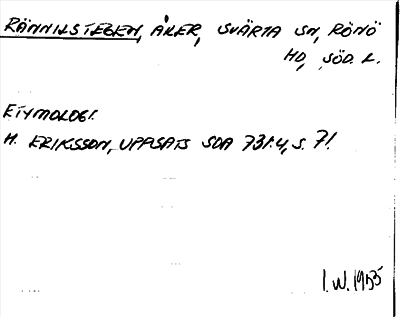 RÄNNILSTEGEN, ÅKER, SVÄRTA SN, RÖNÖ
HD, SÖD. L.
ETYMOLOGI.
H. ERIKSSON, UPPSATS SOA 731:4, S. 71.
I.W. 1955